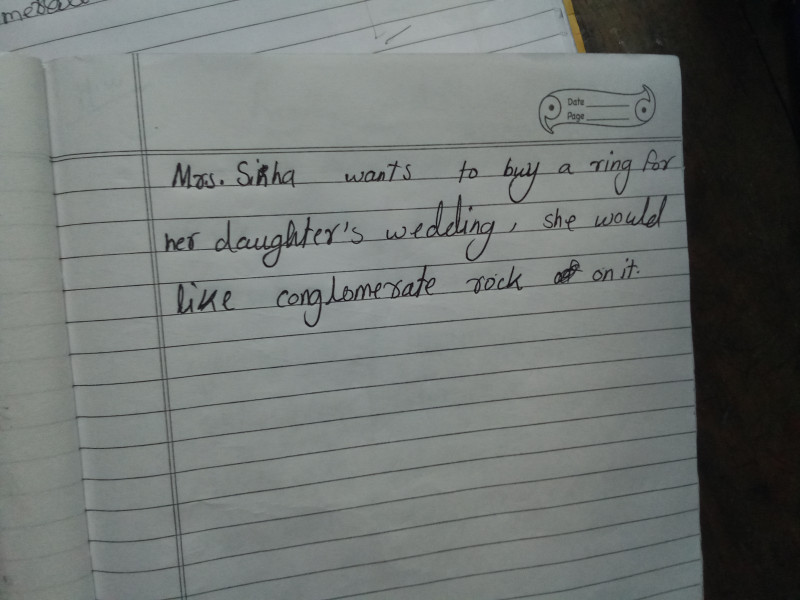 Date
Page
Mrs. Sinha wants to buy a ring for
her daughter's wedding, she would
like conglomerate rock on it.